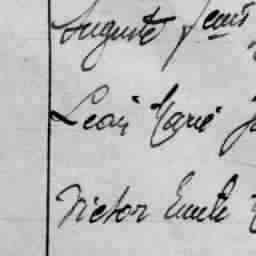 Auguste
Léon Marie
Victor Emile